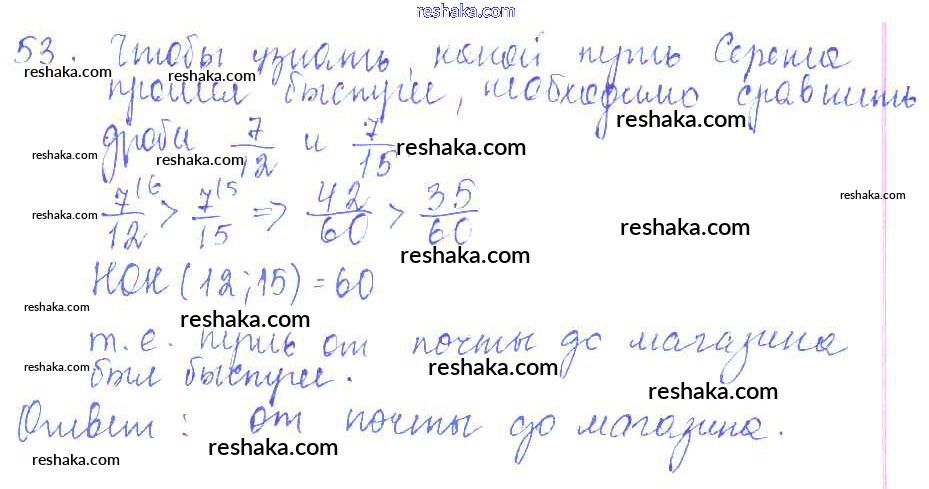 reshaka.com
53. Чтобы узнать, какой путь Сережа
reshaka.com reshaka.com
прошел быстрее, необходимо сравнить
reshaka.com
дроби 7/12 и 7/15.
reshaka.com reshaka.com reshaka.com
7/12 > 7/15 => 42/60 > 35/60
reshaka.com reshaka.com reshaka.com reshaka.com
НОК (12;15) = 60
reshaka.com reshaka.com
т.е. путь от почты до магазина
был быстрее.
reshaka.com reshaka.com reshaka.com
Ответ: от почты до магазина.
reshaka.com reshaka.com